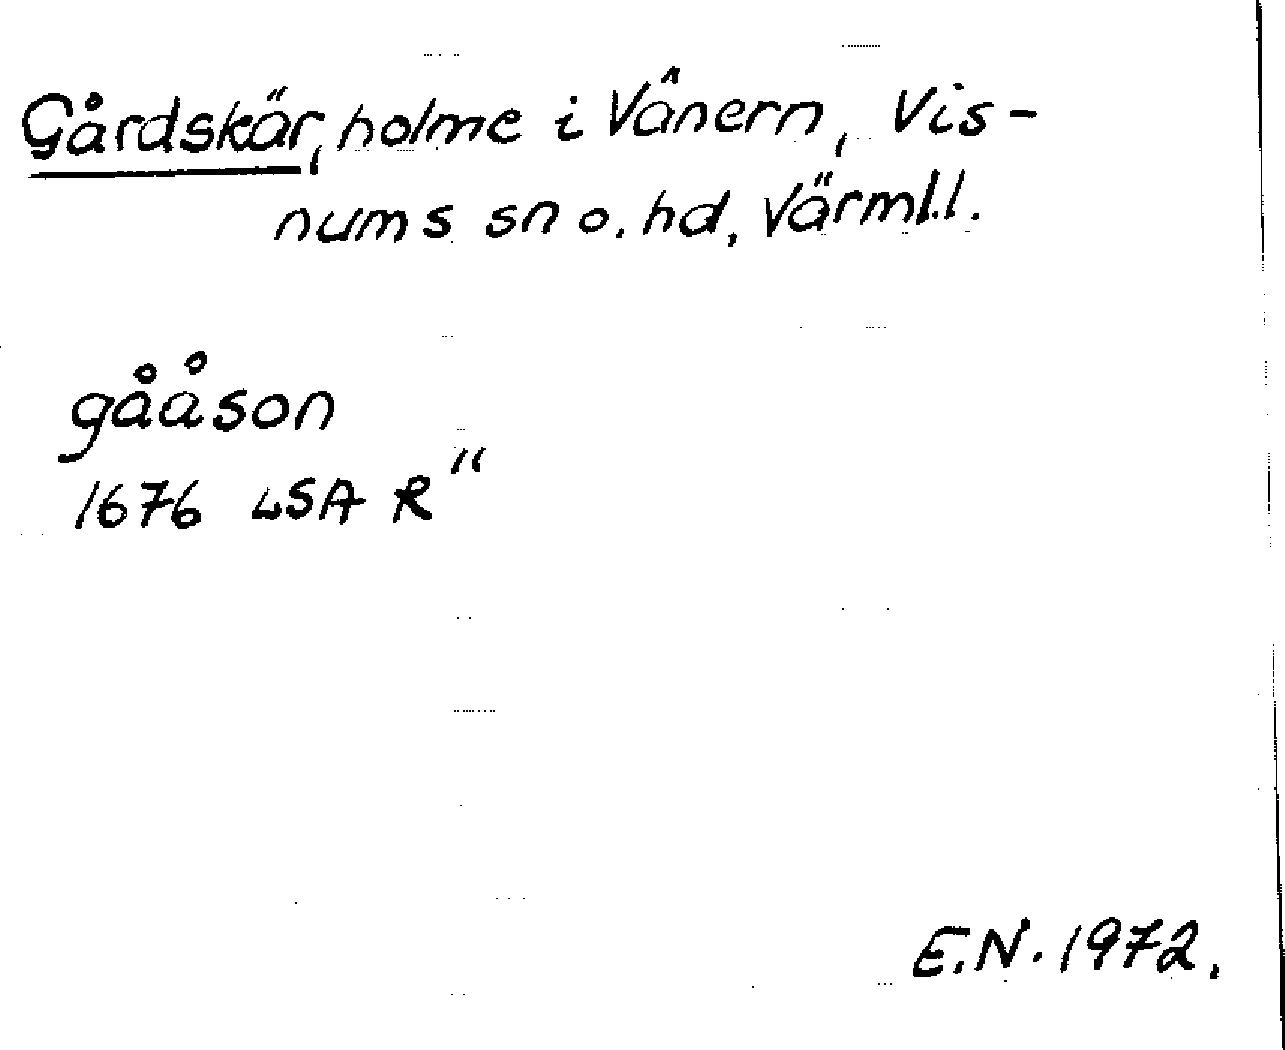 Gårdskär, holme i Vänern, Vis-
nums sn o. hd, Värml.l.
gååson
1676 LSA R"
E.N. 1972.